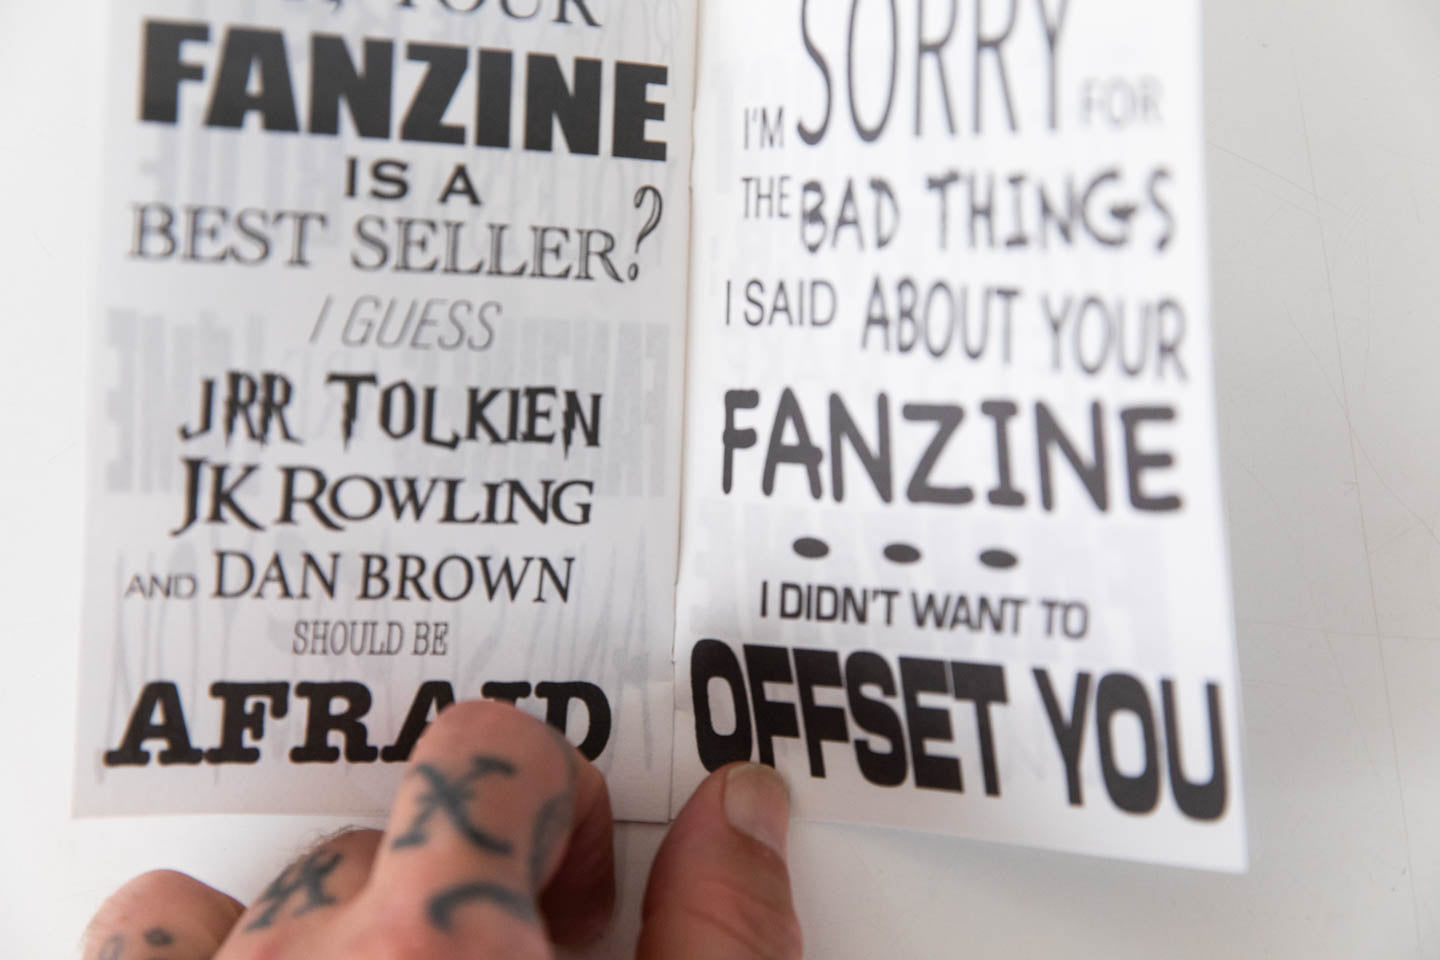 YOUR
FANZINE
IS A
BEST SELLER?
I GUESS
JRR TOLKIEN
JK ROWLING
AND DAN BROWN
SHOULD BE
AFRAID
I'M SORRY FOR
THE BAD THINGS
I SAID ABOUT YOUR
FANZINE
...
I DIDN'T WANT TO
OFFSET YOU